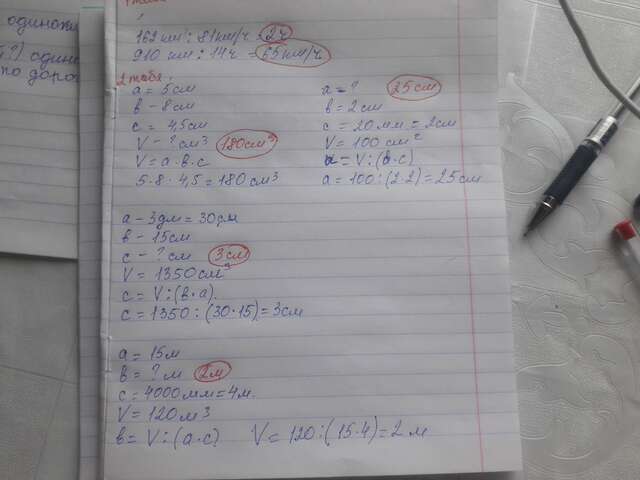 162 км : 81 км/ч = 2ч
910 км : 14ч = 65 км/ч
2 табл.
a = 5 см
в - 8 см
c = 4,5 см
V - ? см³ 180 см³
V = a · в · c
5 · 8 · 4,5 = 180 см³
a = ? 25 см
в = 2 см
c = 20 мм = 2 см
V = 100 см²
a = V : (в · c)
a = 100 : (2 · 2) = 25 см
a - 3 дм = 30 см
в - 15 см
c - ? см 3 см
V = 1350 см³
c = V : (в · a).
c = 1350 : (30 · 15) = 3 см
a = 15 м
в = ? м 2 м
c = 4000 мм = 4 м.
V = 120 м³
в = V : (a · c) V = 120 : (15 · 4) = 2 м